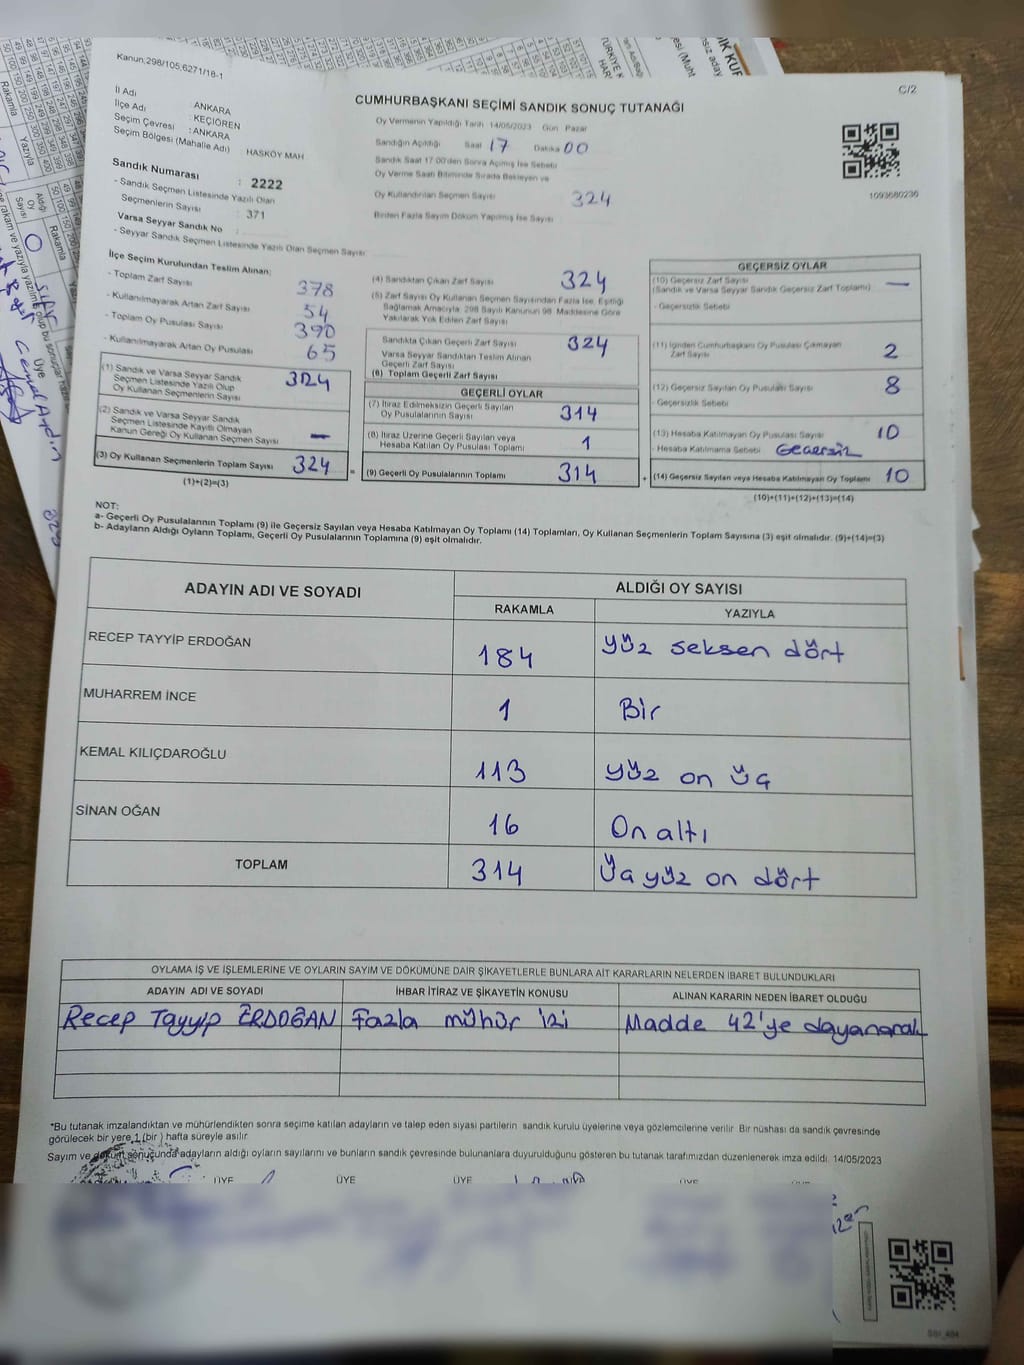 Kanun;298/105,6271/18-1
C/2
CUMHURBAŞKANI SEÇİMİ SANDIK SONUÇ TUTANAĞI
İl Adı : ANKARA
İlçe Adı : KEÇİÖREN
Seçim Çevresi : ANKARA
Seçim Bölgesi (Mahalle Adı) : HASKÖY MAH
Oy Vermenin Yapıldığı Tarih 14/05/2023 Gün Pazar
Sandığın Açıldığı Saat 17 Dakika 00
Sandık Saat 17.00'den Sonra Açılmış İse Sebebi
Oy Verme Saati Bitiminde Sırada Bekleyen ve
Oy Kullandırılan Seçmen Sayısı 324
Birden Fazla Sayım Döküm Yapılmış İse Sayısı
1093680236
Sandık Numarası : 2222
- Sandık Seçmen Listesinde Yazılı Olan
Seçmenlerin Sayısı : 371
Varsa Seyyar Sandık No :
- Seyyar Sandık Seçmen Listesinde Yazılı Olan Seçmen Sayısı
İlçe Seçim Kurulundan Teslim Alınan:
- Toplam Zarf Sayısı 378
- Kullanılmayarak Artan Zarf Sayısı 54
- Toplam Oy Pusulası Sayısı 390
- Kullanılmayarak Artan Oy Pusulası 65
(1) Sandık ve Varsa Seyyar Sandık
Seçmen Listesinde Yazılı Olup
Oy Kullanan Seçmenlerin Sayısı 324
(2) Sandık ve Varsa Seyyar Sandık
Seçmen Listesinde Kayıtlı Olmayan
Kanun Gereği Oy Kullanan Seçmen Sayısı —
(3) Oy Kullanan Seçmenlerin Toplam Sayısı 324
(1)+(2)=(3)
(4) Sandıktan Çıkan Zarf Sayısı 324
(5) Zarf Sayısı Oy Kullanan Seçmen Sayısından Fazla İse, Eşitliği
Sağlamak Amacıyla, 298 Sayılı Kanunun 98. Maddesine Göre
Yakılarak Yok Edilen Zarf Sayısı
Sandıkta Çıkan Geçerli Zarf Sayısı 324
Varsa Seyyar Sandıktan Teslim Alınan
Geçerli Zarf Sayısı
(6) Toplam Geçerli Zarf Sayısı
GEÇERLİ OYLAR
(7) İtiraz Edilmeksizin Geçerli Sayılan
Oy Pusulalarının Sayısı 314
(8) İtiraz Üzerine Geçerli Sayılan veya
Hesaba Katılan Oy Pusulası Toplamı 1
(9) Geçerli Oy Pusulalarının Toplamı 314
GEÇERSİZ OYLAR
(10) Geçersiz Zarf Sayısı
(Sandık ve Varsa Seyyar Sandık Geçersiz Zarf Toplamı) —
- Geçersizlik Sebebi
(11) İçinden Cumhurbaşkanı Oy Pusulası Çıkmayan
Zarf Sayısı 2
(12) Geçersiz Sayılan Oy Pusulası Sayısı 8
- Geçersizlik Sebebi
(13) Hesaba Katılmayan Oy Pusulası Sayısı 10
- Hesaba Katılmama Sebebi Geçersiz
(14) Geçersiz Sayılan veya Hesaba Katılmayan Oy Toplamı 10
(10)+(11)+(12)+(13)=(14)
NOT:
a- Geçerli Oy Pusulalarının Toplamı (9) ile Geçersiz Sayılan veya Hesaba Katılmayan Oy Toplamı (14) Toplamları, Oy Kullanan Seçmenlerin Toplam Sayısına (3) eşit olmalıdır. (9)+(14)=(3)
b- Adayların Aldığı Oyların Toplamı, Geçerli Oy Pusulalarının Toplamına (9) eşit olmalıdır.
ADAYIN ADI VE SOYADI
ALDIĞI OY SAYISI
RAKAMLA YAZIYLA
RECEP TAYYİP ERDOĞAN 184 yüz seksen dört
MUHARREM İNCE 1 Bir
KEMAL KILIÇDAROĞLU 113 yüz on üç
SİNAN OĞAN 16 On altı
TOPLAM 314 Üç yüz on dört
OYLAMA İŞ VE İŞLEMLERİNE VE OYLARIN SAYIM VE DÖKÜMÜNE DAİR ŞİKAYETLERLE BUNLARA AİT KARARLARIN NELERDEN İBARET BULUNDUKLARI
ADAYIN ADI VE SOYADI İHBAR İTİRAZ VE ŞİKAYETİN KONUSU ALINAN KARARIN NEDEN İBARET OLDUĞU
Recep Tayyip ERDOĞAN Fazla mühür izi Madde 42'ye dayanarak
*Bu tutanak imzalandıktan ve mühürlendikten sonra seçime katılan adayların ve talep eden siyasi partilerin sandık kurulu üyelerine veya gözlemcilerine verilir. Bir nüshası da sandık çevresinde
görülecek bir yere 1 (bir ) hafta süreyle asılır.
Sayım ve döküm sonucunda adayların aldığı oyların sayılarını ve bunların sandık çevresinde bulunanlara duyurulduğunu gösteren bu tutanak tarafımızdan düzenlenerek imza edildi. 14/05/2023
ÜYE ÜYE ÜYE